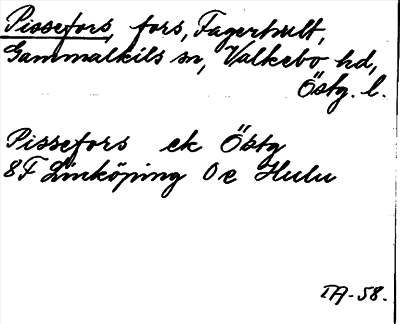 Pissefors, fors, Fagerhult,
Gammalkils sn, Valkebo hd,
Östg. l.
Pissefors ek Östg
8F Linköping 0e Hulu
TA-58.